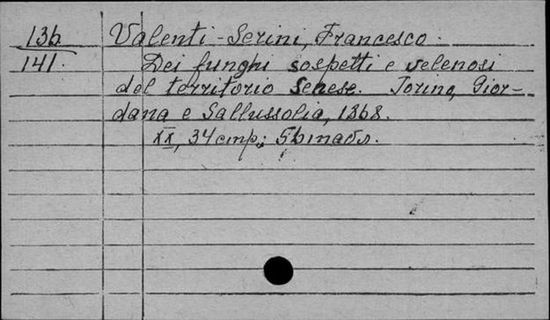 136 Valenti-Serini, Francesco.
141. Dei funghi sospetti e velenosi
del territorio Senese. Torino, Gior-
dana e Sallussolia, 1868.
XX, 34 cmp.;